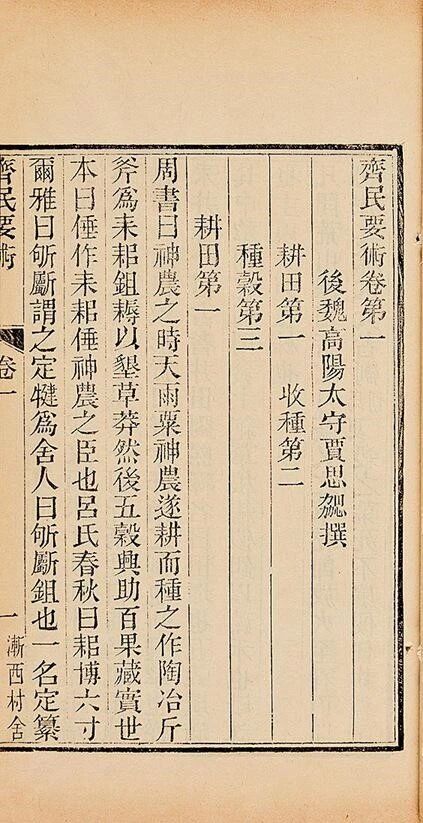 齊民要術卷第一
後魏高陽太守賈思勰撰
耕田第一 收種第二
種穀第三
耕田第一
周書曰神農之時天雨粟神農遂耕而種之作陶冶斤
斧爲耒耜鉏耨以墾草莽然後五穀興助百果藏實世
本曰倕作耒耜倕神農之臣也呂氏春秋曰耜博六寸
爾雅曰斪斸謂之定犍爲舍人曰斪斸鉏也一名定纂
齊民要術 卷一 一 漸西村舍